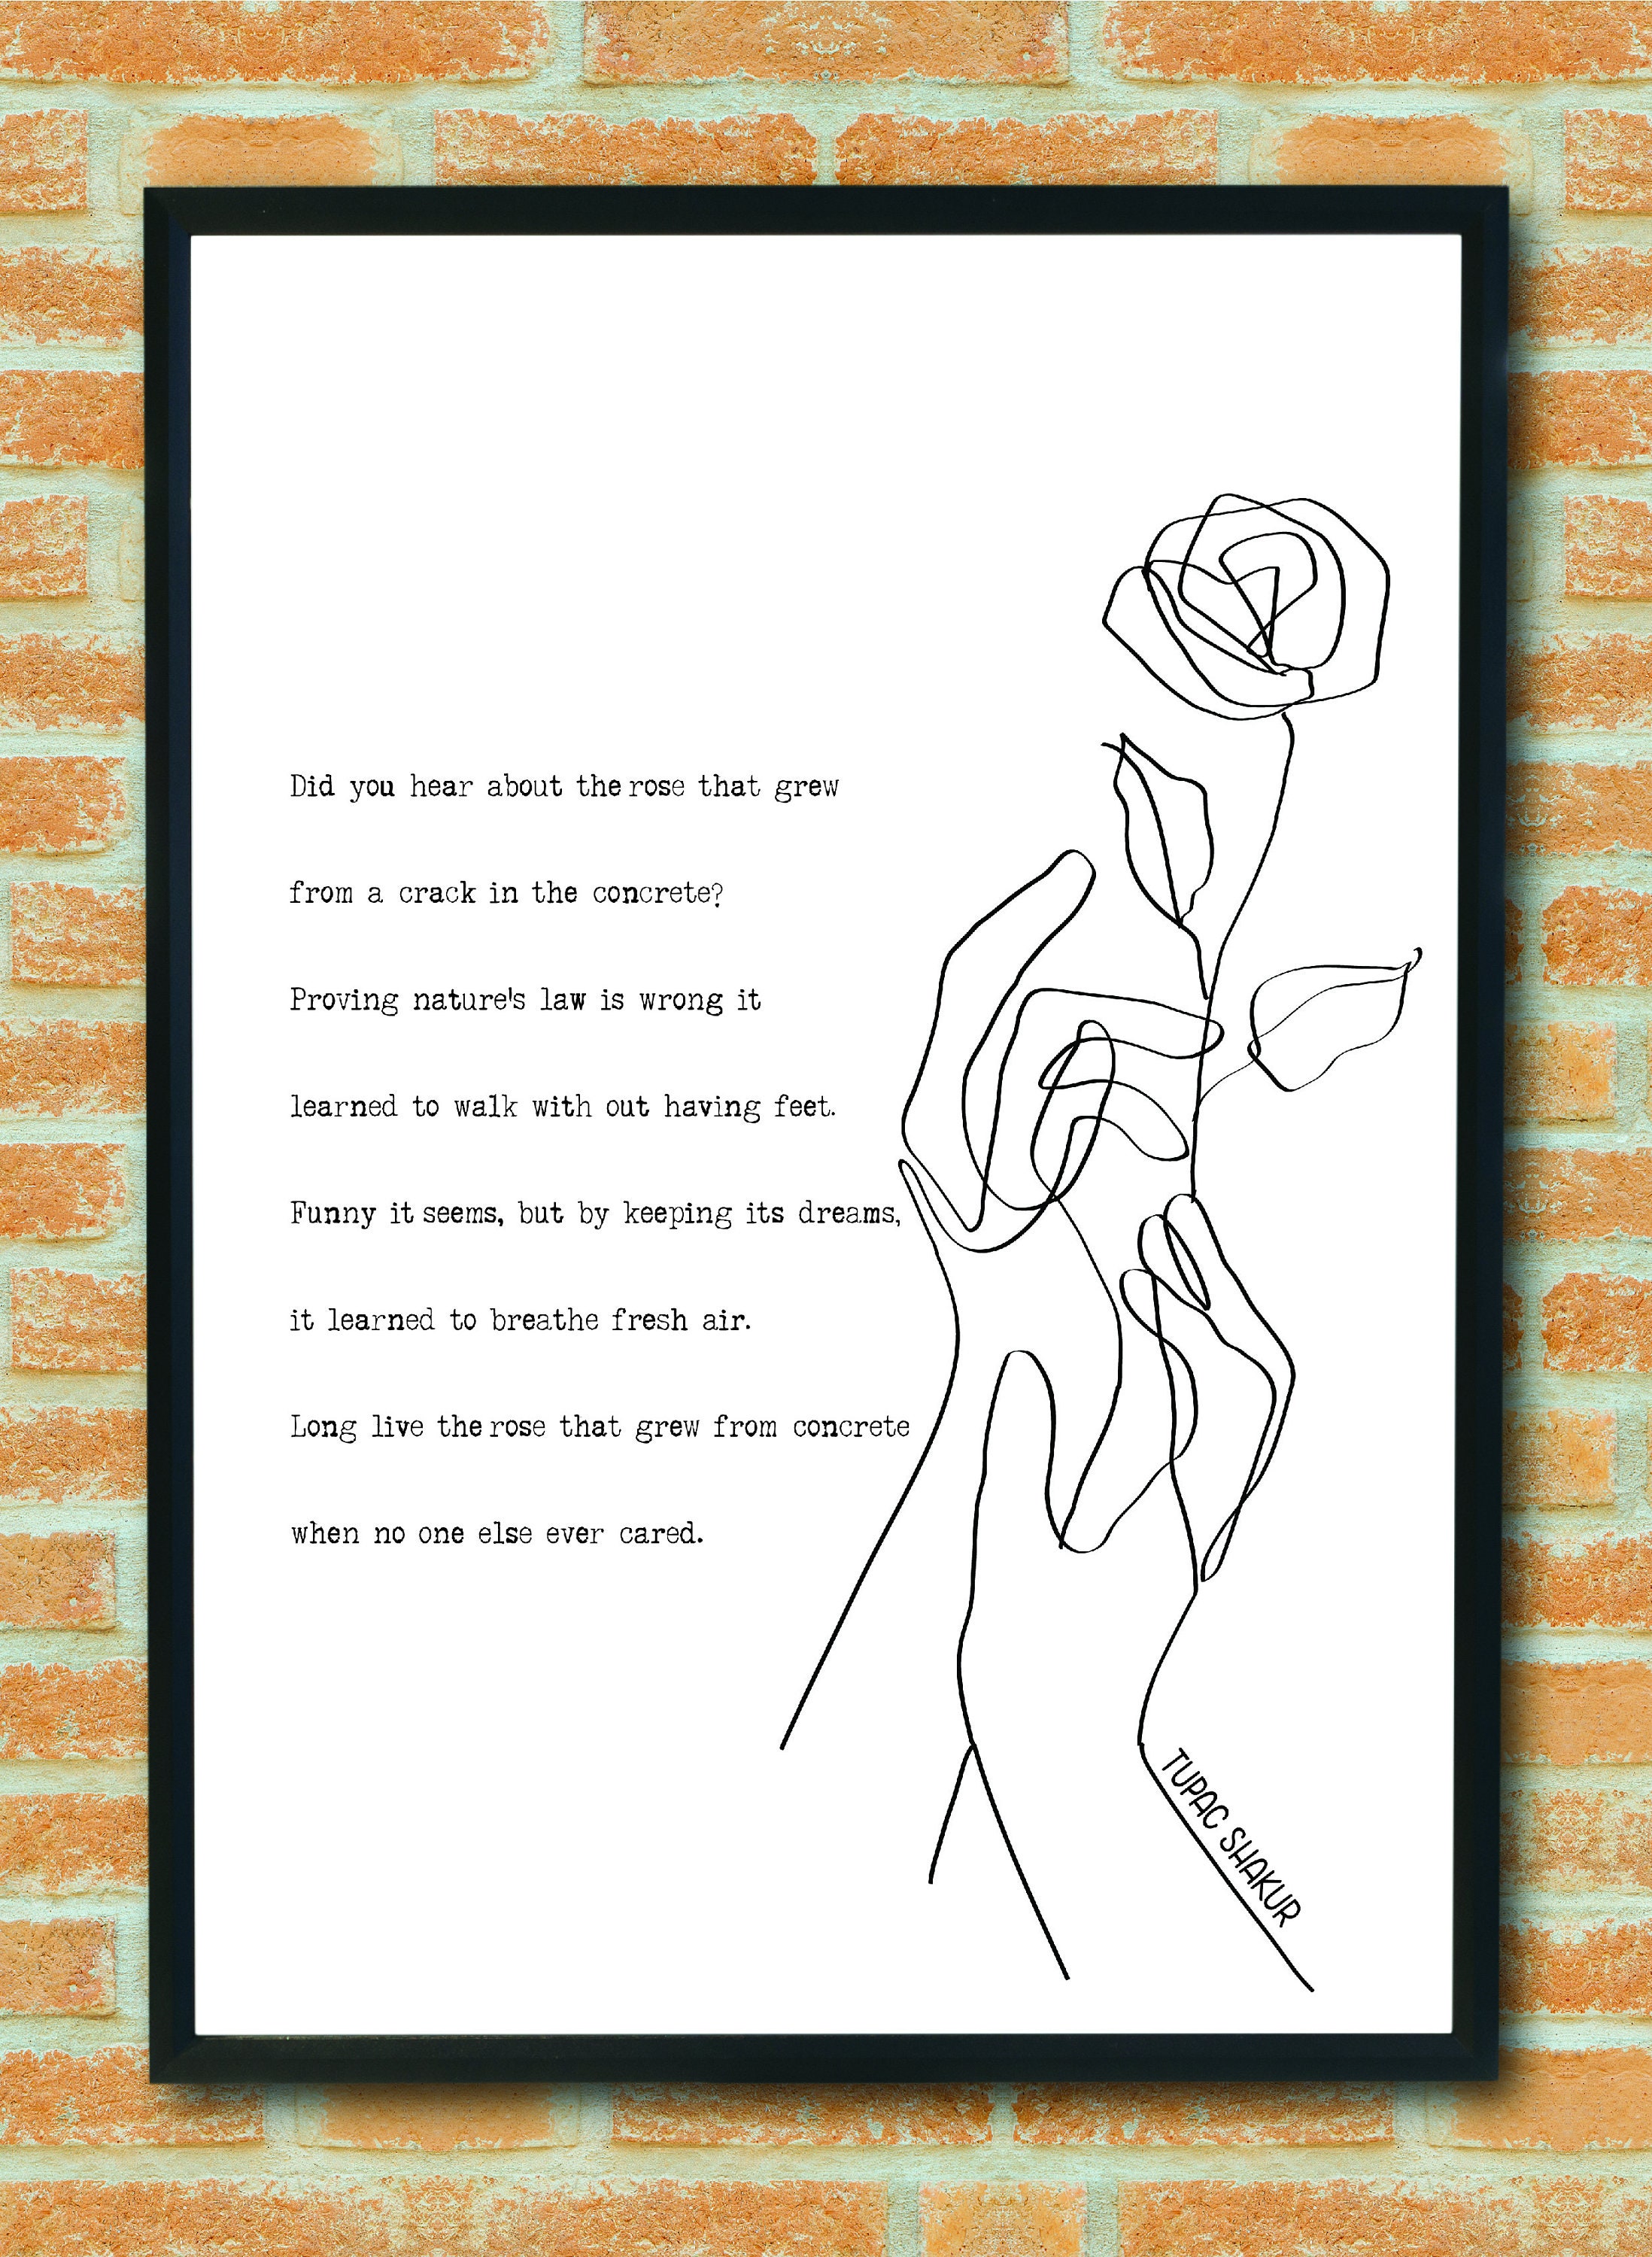 Did you hear about the rose that grew
from a crack in the concrete?
Proving nature's law is wrong it
learned to walk with out having feet.
Funny it seems, but by keeping its dreams,
it learned to breathe fresh air.
Long live the rose that grew from concrete
when no one else ever cared.
TUPAC SHAKUR